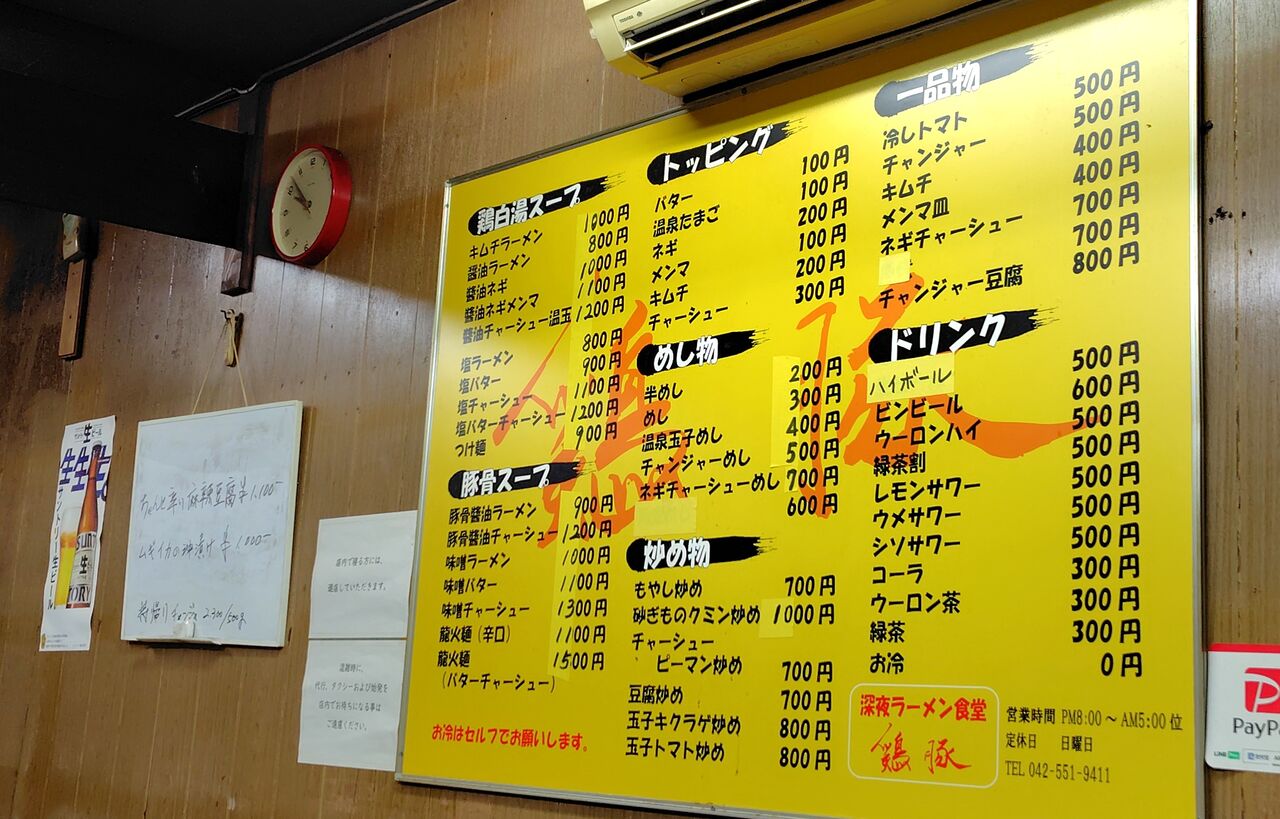 TOSHIBA
鶏白湯スープ
キムチラーメン 1000円
醤油ラーメン 800円
醤油ネギ 1000円
醤油ネギメンマ 1100円
醤油チャーシュー温玉 1200円
塩ラーメン 800円
塩バター 900円
塩チャーシュー 1100円
塩バターチャーシュー 1200円
つけ麺 900円
豚骨スープ
豚骨醤油ラーメン 900円
豚骨醤油チャーシュー 1200円
味噌ラーメン 1000円
味噌バター 1100円
味噌チャーシュー 1300円
龍火麺(辛口) 1100円
龍火麺 1500円
(バターチャーシュー)
お冷はセルフでお願いします。
トッピング
バター 100円
温泉たまご 100円
ネギ 200円
メンマ 100円
キムチ 200円
チャーシュー 300円
めし物
半めし 200円
めし 300円
温泉玉子めし 400円
チャンジャーめし 500円
ネギチャーシューめし 700円
600円
炒め物
もやし炒め 700円
砂ぎものクミン炒め 1000円
チャーシュー
ピーマン炒め 700円
豆腐炒め 700円
玉子キクラゲ炒め 800円
玉子トマト炒め 800円
一品物
冷しトマト 500円
チャンジャー 500円
キムチ 400円
メンマ皿 400円
ネギチャーシュー 700円
700円
チャンジャー豆腐 800円
ドリンク
ハイボール 500円
ビンビール 600円
ウーロンハイ 500円
緑茶割 500円
レモンサワー 500円
ウメサワー 500円
シソサワー 500円
コーラ 300円
ウーロン茶 300円
緑茶 300円
お冷 0円
深夜ラーメン食堂
鶏豚
営業時間 PM8:00～AM5:00位
定休日 日曜日
TEL 042-551-9411
鶏豚
生ビール
サントリー生ビール
ちゃんと辛い麻辣豆腐 1.100-
ムギイカの沖漬け 1.000-
2.300/500g
店内で寝る方には、
退店していただきます。
混雑時に、
代行、タクシーおよび始発を
店内でお待ちになる事は
ご遠慮ください。
PayPay